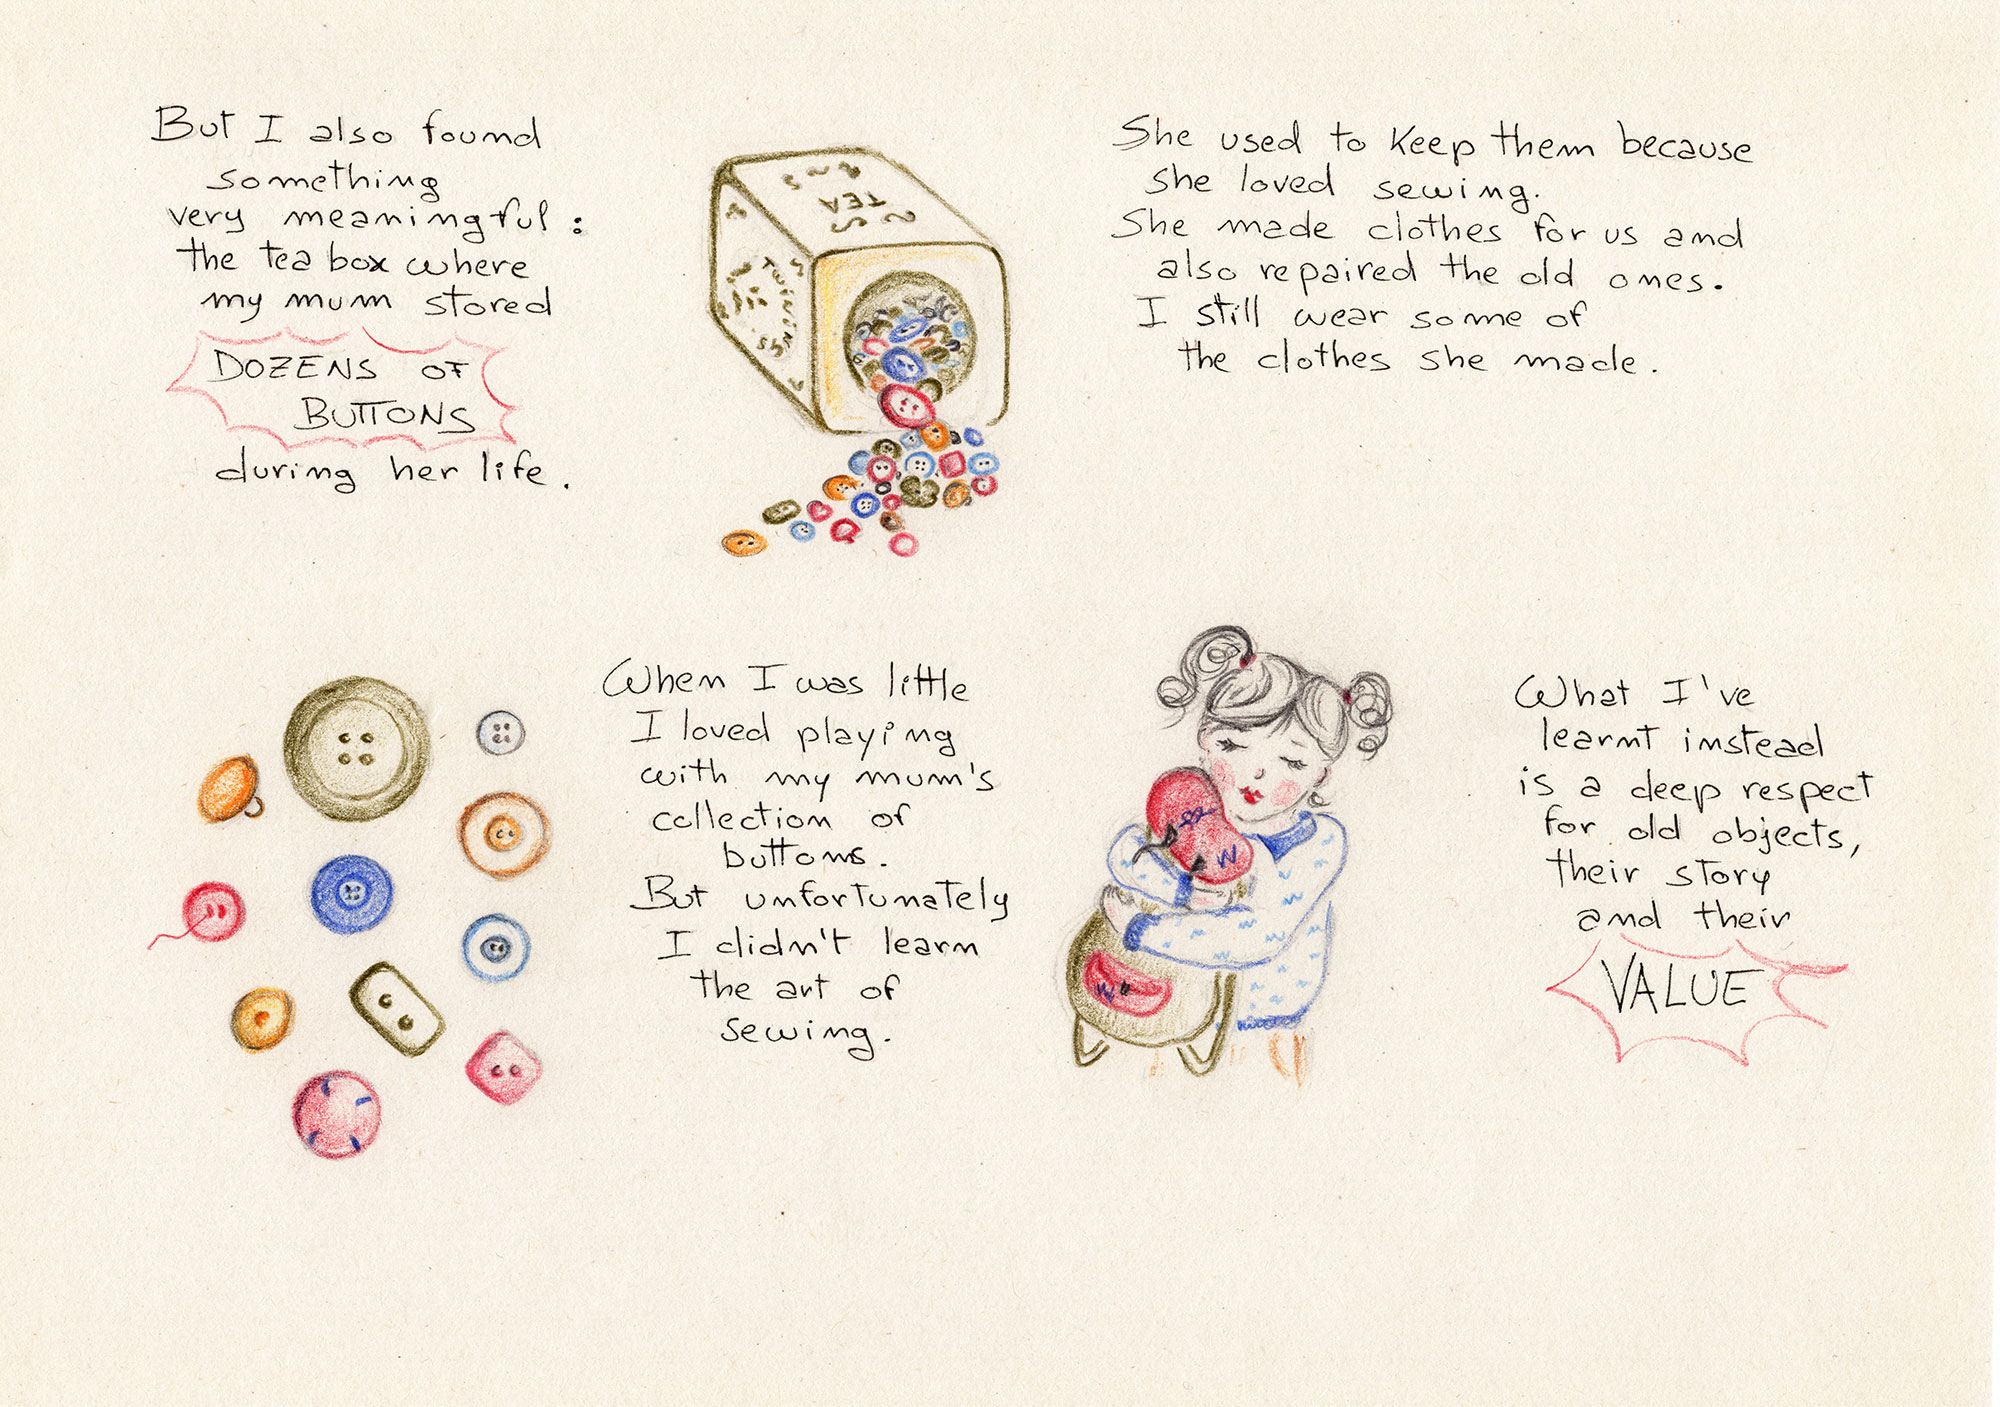 But I also found
something
very meaningful:
the tea box where
my mum stored
DOZENS OF
BUTTONS
during her life.
TEA
TWININ
She used to keep them because
she loved sewing.
She made clothes for us and
also repaired the old ones.
I still wear some of
the clothes she made.
When I was little
I loved playing
with my mum's
collection of
buttons.
But unfortunately
I didn't learn
the art of
sewing.
What I've
learnt instead
is a deep respect
for old objects,
their story
and their
VALUE